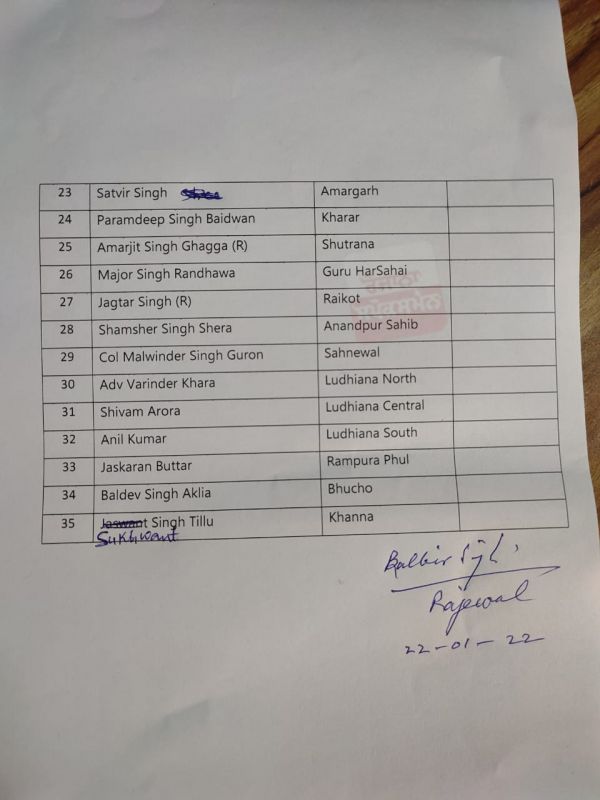 23 Satvir Singh Amargarh
24 Paramdeep Singh Baidwan Kharar
25 Amarjit Singh Ghagga (R) Shutrana
26 Major Singh Randhawa Guru HarSahai
27 Jagtar Singh (R) Raikot
28 Shamsher Singh Shera Anandpur Sahib
29 Col Malwinder Singh Guron Sahnewal
30 Adv Varinder Khara Ludhiana North
31 Shivam Arora Ludhiana Central
32 Anil Kumar Ludhiana South
33 Jaskaran Buttar Rampura Phul
34 Baldev Singh Aklia Bhucho
35 Jaswant Singh Tillu Khanna
Sukhwant
ਰੋਜ਼ਾਨਾ
ਸਪੋਕਸਮੈਨ
Balbir Singh
Rajewal
22-01-22